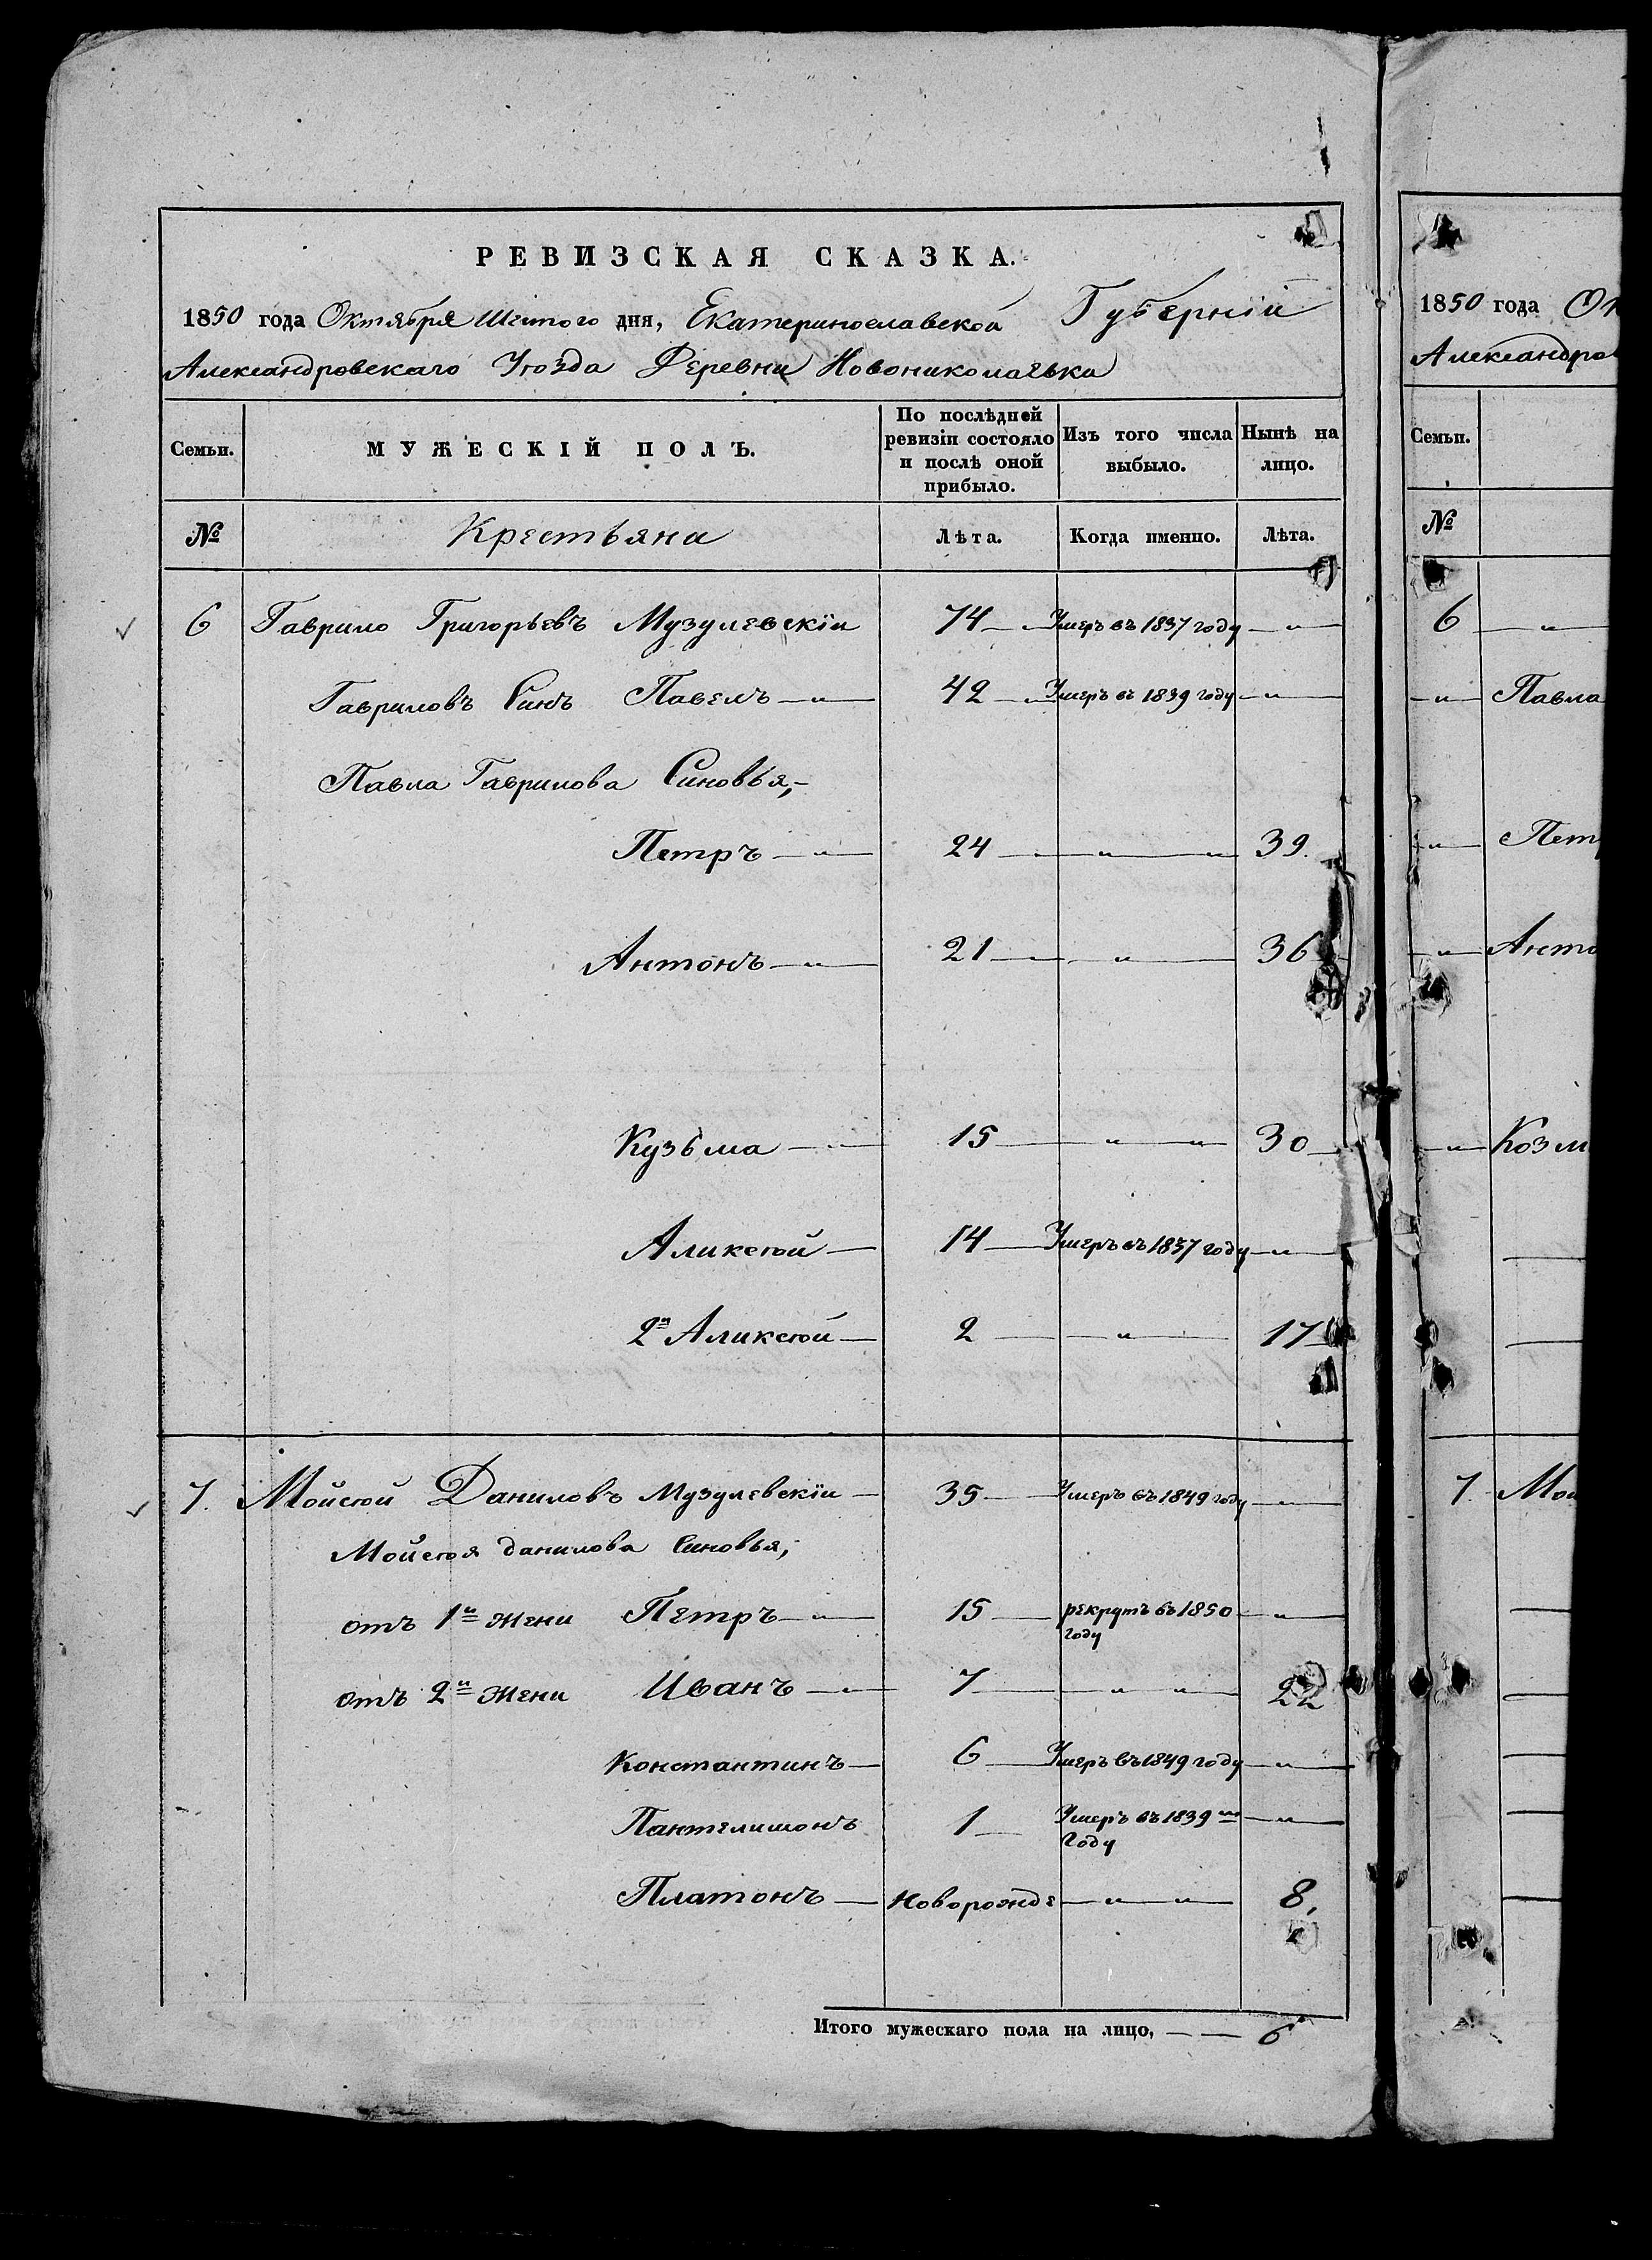 РЕВИЗСКАЯ СКАЗКА.
1850 года Октября Шестого дня, Екатеринославской Губерніи
Александровскаго Уѣзда Деревни Новониколаевки
Семьи. МУЖЕСКІЙ ПОЛЪ. По послѣдней ревизіи состояло и послѣ оной прибыло. Изъ того числа выбыло. Нынѣ на лицо.
№ Крестьяна Лѣта. Когда именно. Лѣта.
6 Гаврило Григорьевъ Музулевскіи 74 Умеръ въ 1837 году — „ —
Гавриловъ Синъ Павелъ — „ — 42 Умеръ въ 1839 году — „ —
Павла Гаврилова Синовья,-
Петръ — „ — 24 — „ — „ — 39.
Антонъ — „ — 21 — „ — 36
Кузьма — „ — 15 — „ — „ — 30
Аликсѣй — 14 Умеръ въ 1837 году — „ —
2й Аликсѣй — 2 — „ — 17
7. Мойсѣй Даниловъ Музулевскіи — 35 Умеръ въ 1849 году — „ —
Мойсѣя данилова Синовья,
отъ 1й жени Петръ — „ — 15 рекрутъ въ 1850 году — „ —
отъ 2й жени Иванъ — „ — 7 — „ — „ — 22
Константинъ — 6 Умеръ въ 1849 году — „ —
Пантелимонъ 1 — Умеръ въ 1839мъ году — „ —
Платонъ — Новорожде — „ — „ — 8,
Итого мужескаго пола на лицо, — — 6
1850 года
Семьи.
№
6 — „ —
— „ — Павла
— „ —
— „ —
— „ —
7.